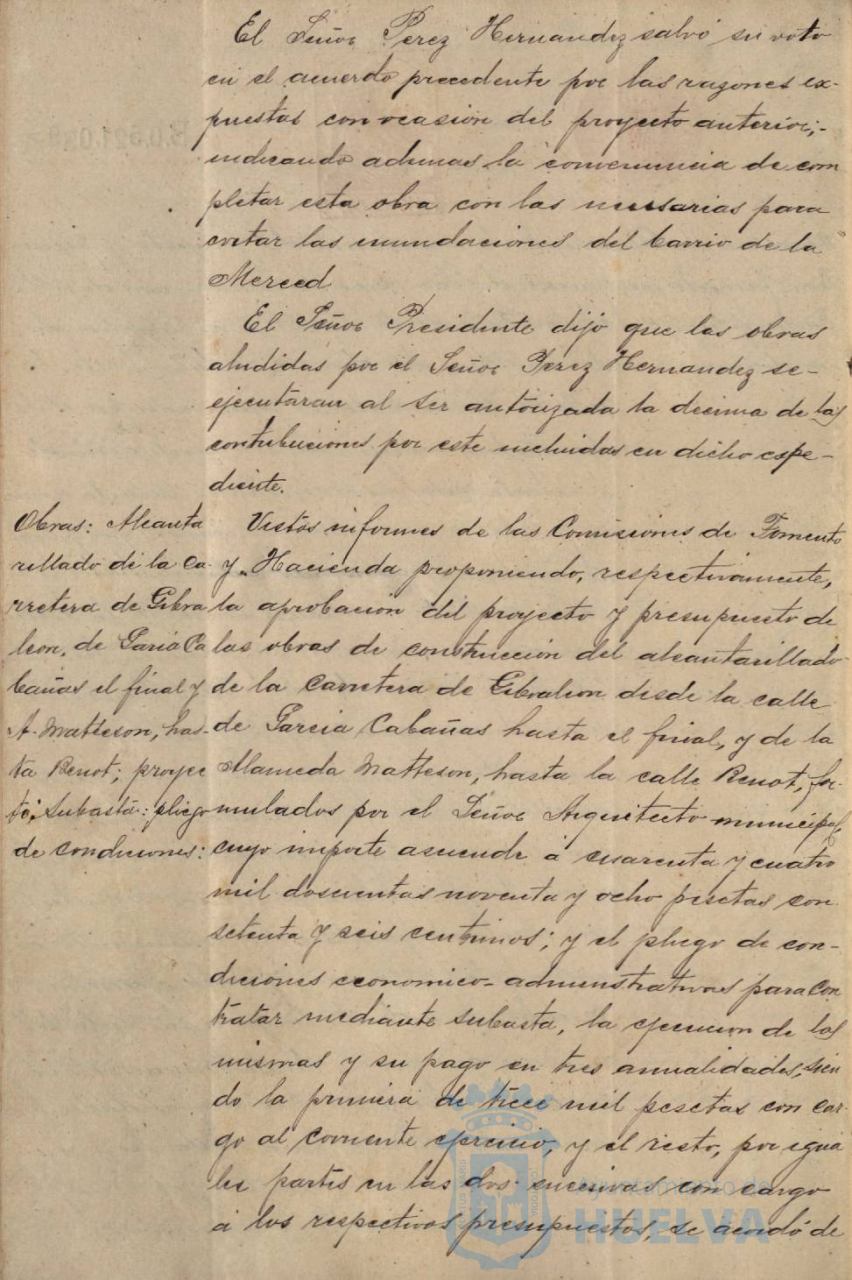 El Señor Perez Hernandez salvó su voto
en el acuerdo precedente por las razones ex-
puestas con ocasión del proyecto anterior;-
indicando ademas la conveniencia de com
pletar esta obra con las necesarias para
evitar las inundaciones del barrio de la
Merced
El Señor Presidente dijo que las obras
aludidas por el Señor Perez Hernandez se-
ejecutaran al ser autorizada la decima de las
contribuciones por este incluidas en dicho espe-
diente.
Obras: Alcanta
rillado de la Ca-
rretera de Gibra
leon, de Garcia Ca
bañas el final y
A. Matteson, has-
ta Renot; proyec
to: Subasta: pliego
de condiciones:
Vistos informes de las Comisiones de Fomento
y Hacienda proponiendo, respectivamente,
la aprobación del proyecto y presupuesto de
las obras de construcción del alcantarillado
de la Carretera de Gibraleon desde la calle
de Garcia Cabañas hasta el final, y de la
Alameda Matteson, hasta la calle Renot, for-
mulados por el Señor Arquitecto municipal,
cuyo importe asciende á cuarenta y cuatro
mil doscientas noventa y ocho pesetas con
setenta y seis centimos; y el pliego de con-
diciones economico-administrativas para con
tratar mediante subasta, la ejecucion de las
mismas y su pago en tres anualidades, sien
do la primera de trece mil pesetas con car-
go al corriente ejercicio, y el resto, por igua
les partes en las dos sucesivas con cargo
á los respectivos presupuestos, se acordó de
Ayuntamiento de
HUELVA